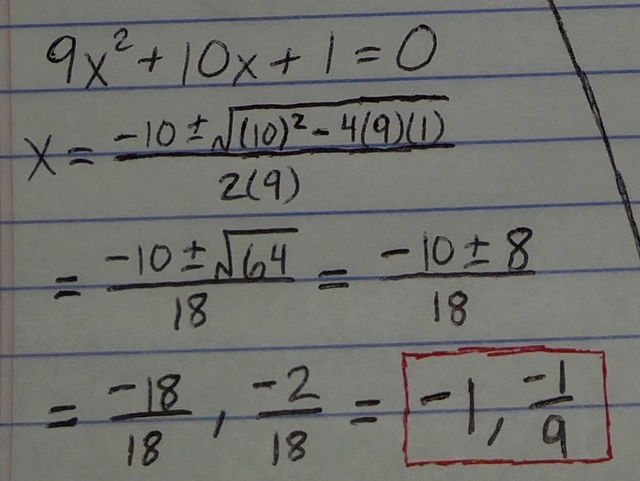 9x² + 10x + 1 = 0
x = (-10 ± √((10)² - 4(9)(1))) / (2(9))
= (-10 ± √64) / 18 = (-10 ± 8) / 18
= -18/18, -2/18 = -1, -1/9